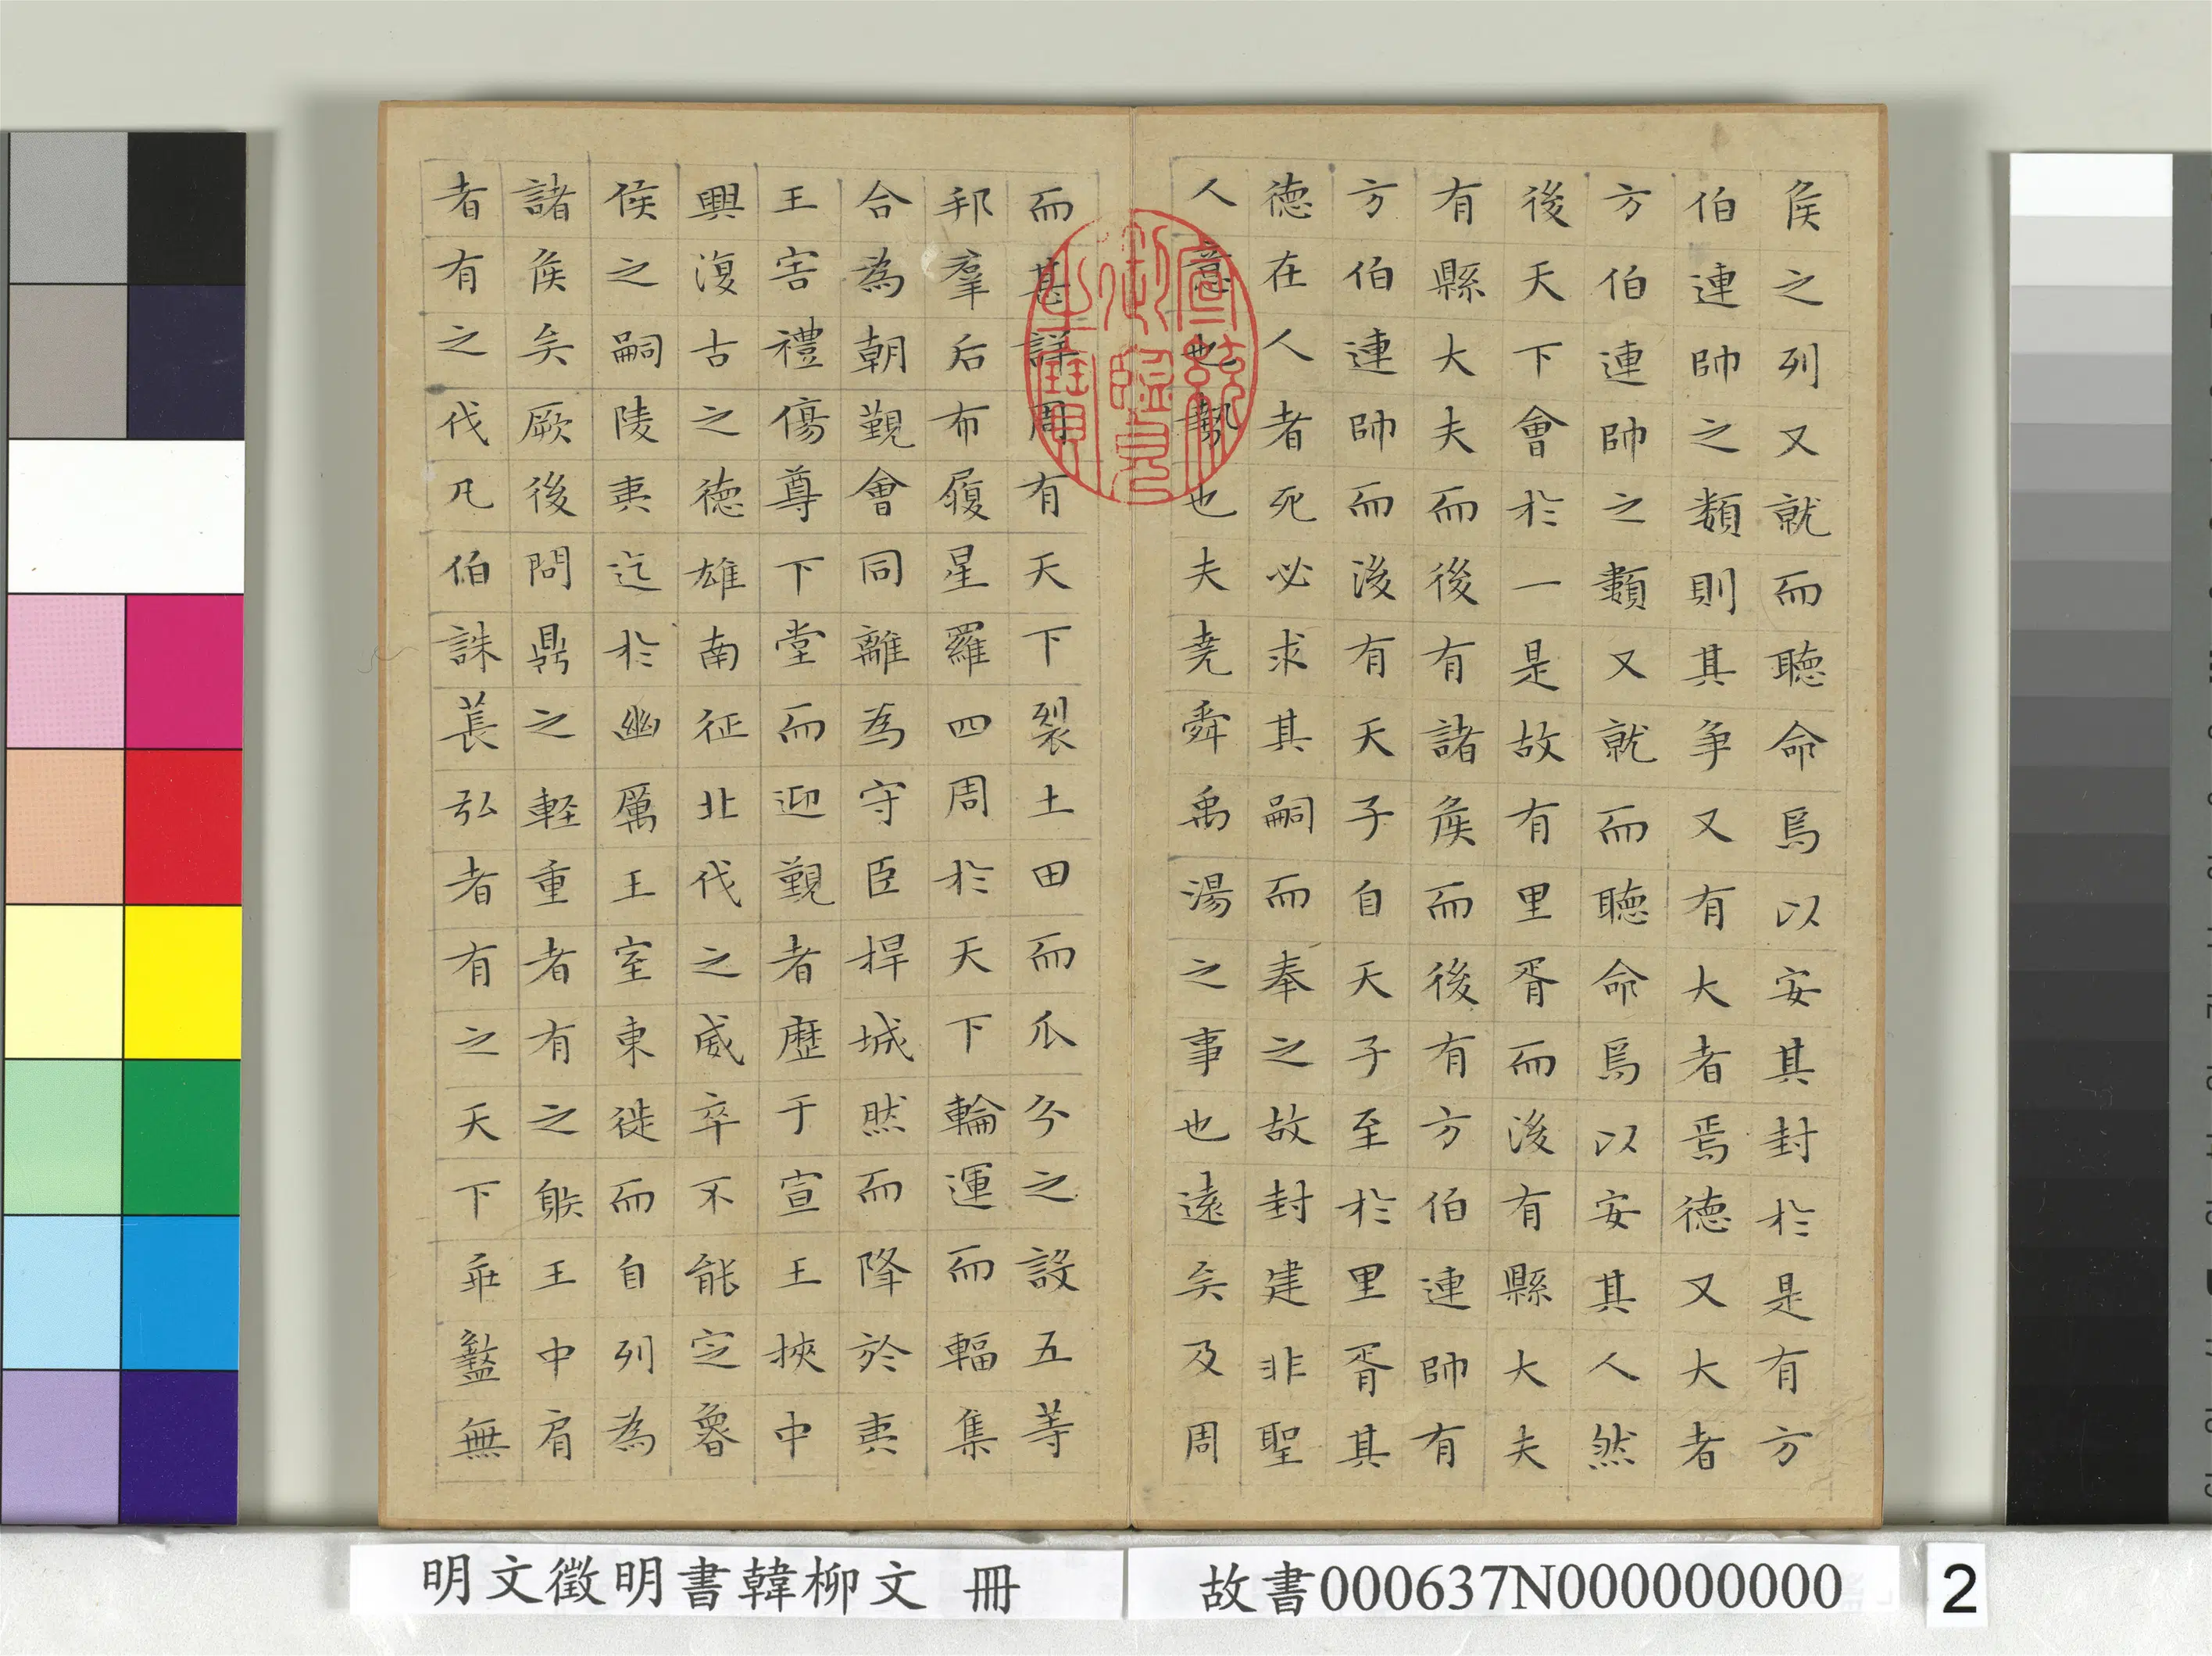 侯之列又就而聽命焉以安其封於是有方
伯連帥之類則其爭又有大者焉德又大者
方伯連帥之類又就而聽命焉以安其人然
後天下會於一是故有里胥而後有縣大夫
有縣大夫而後有諸侯而後有方伯連帥有
方伯連帥而後有天子自天子至於里胥其
德在人者死必求其嗣而奉之故封建非聖
人意也勢也夫堯舜禹湯之事也遠矣及周
宣統御覽之寶
而甚詳周有天下裂土田而瓜分之設五等
邦羣后布履星羅四周於天下輪運而輻集
合為朝覲會同離為守臣捍城然而降於夷
王害禮傷尊下堂而迎覲者歷于宣王挾中
興復古之德雄南征北伐之威卒不能定魯
侯之嗣陵夷迄於幽厲王室東徙而自列為
諸侯矣厥後問鼎之輕重者有之䠶王中肩
者有之伐凡伯誅萇弘者有之天下乖盭無
明文徵明書韓柳文 冊
故書000637N000000000
2